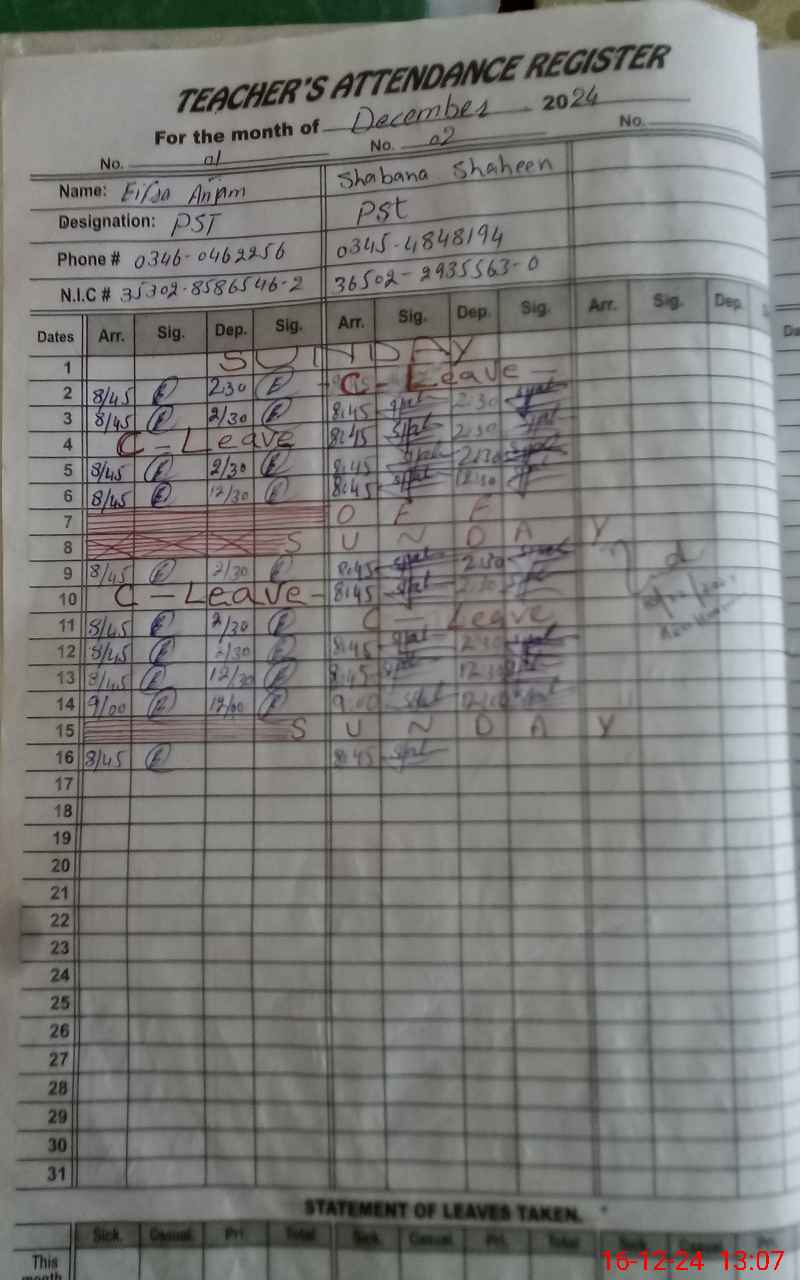 TEACHER'S ATTENDANCE REGISTER
For the month of December 2024
No. 01 No. 02 No.
Name: Anam Shabana Shaheen
Designation: PST PSt
Phone # 0346-0462256 0345-4848194
N.I.C # 35302-8586546-2 36502-2935563-0
Dates Arr. Sig. Dep. Sig. Arr. Sig. Dep. Sig. Arr. Sig. Dep.
1 SUNDAY
2 8/45 E 2:30 E C-Leave
3 8/45 E 2/30 E 8:45 2:30
4 C-Leave 8:45 2:30
5 8/45 E 2/30 E 8:45 2:30
6 8/45 E 12/30 E 8:45 12:30
7 OFF
8 SUNDAY
9 8/45 E 2/30 E 8:45 2:30
10 C-Leave 8:45 2:30
11 8/45 E 2/30 E C-Leave
12 8/45 E 2/30 E 8:45 2:30
13 8/45 E 12/30 E 8:45 12:30
14 9/00 E 12/00 E 9:00
15 SUNDAY
16 8/45 E 8:45
17
18
19
20
21
22
23
24
25
26
27
28
29
30
31
STATEMENT OF LEAVES TAKEN.
Sick. Casual. Pri. Total. Sick. Casual. Pri. Total. Sick. Casual. Pri.
This
month
16-12-24 13:07